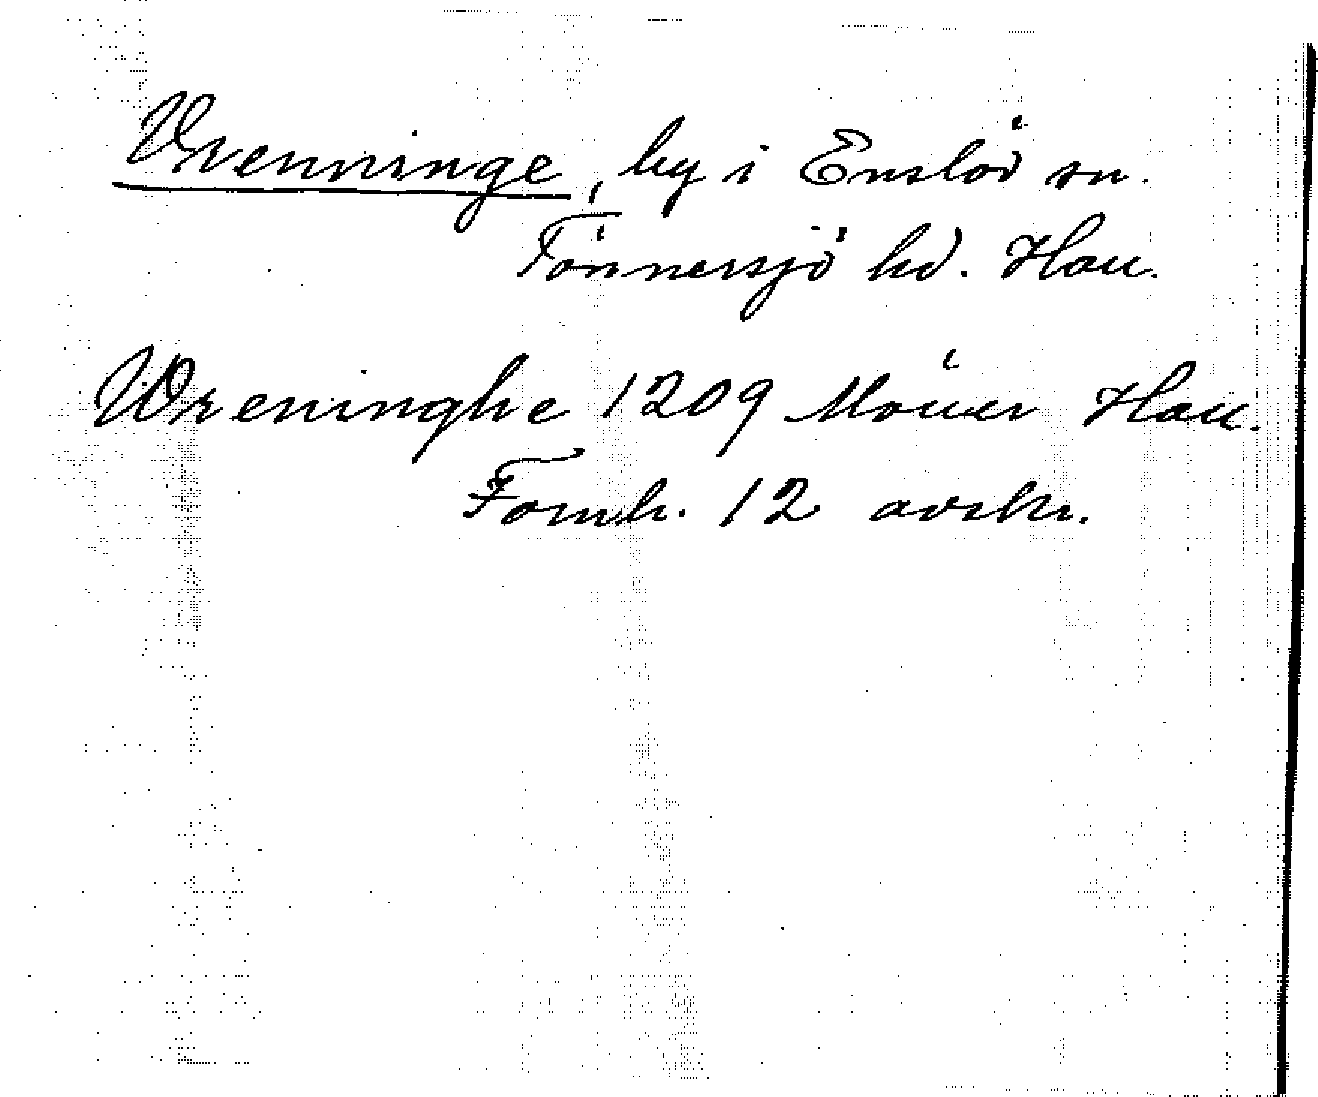 Vrenninge, by i Enslöv sn.
Tönnersjö hd. Hall.
Wreninghe 1209 Möller Hall.
Fornh. 12 avskr.